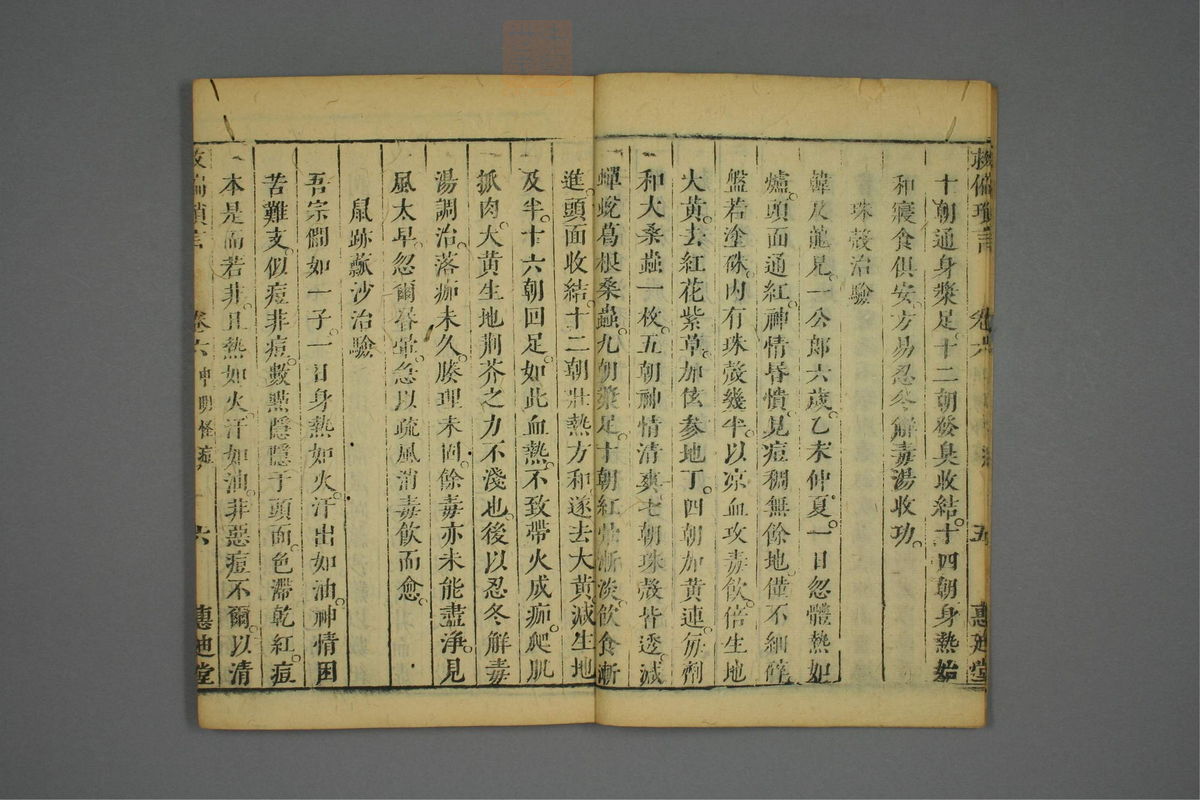 救偏瑣言
卷六
五
惠迪堂
十朝通身漿足。十二朝發臭收結。十四朝身熱始
和寢食俱安。方易忍冬解毒湯收功。
珠殼治驗
韓及龍兄一公郎六歲。乙未仲夏。一日忽體熱如
爐。頭面通紅。神情昏憒。見痘稠無餘地。僅不細碎
盤若塗硃。內有珠殼幾半。以凉血攻毒飲。倍生地
大黃。去紅花紫草。加伭參地丁。四朝加黃連。每劑
和大桑蟲一枚。五朝神情清爽。七朝珠殼皆透。減
蟬蛻葛根桑蟲。九朝漿足。十朝紅㷫漸淡。飲食漸
進。頭面收結。十二朝壯熱方和遂去大黃。減生地
及半。十六朝回足。如此血熱。不致帶火成痂。爬肌
抓肉。大黃生地荆芥之力不淺也。後以忍冬解毒
湯調治。落痂未久。腠理未固。餘毒亦未能盡淨。見
風太早。忽爾昏暈。急以疏風消毒飲而愈。
鼠跡蔴沙治驗
吾宗僴如一子。一日身熱如火。汗出如油。神情困
苦難支。似痘非痘。數點隱隱于頭面。色滯乾紅。痘
本是而若非。且熱如火。汗如油。非惡痘不爾。以清
救偏瑣言
卷六
申明怪痘
六
惠迪堂